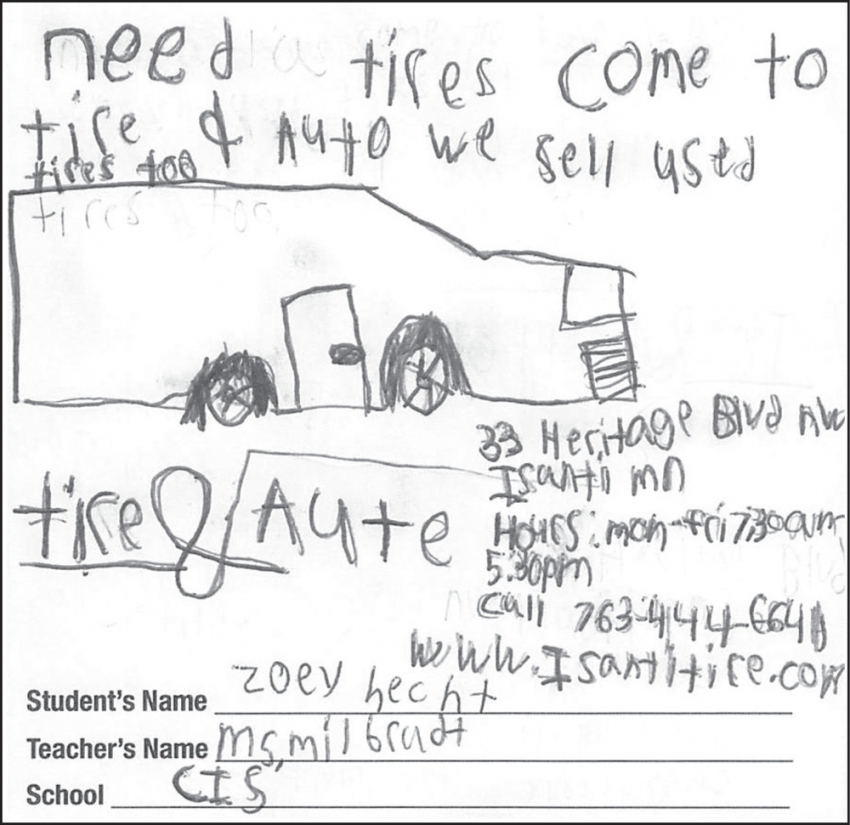 need tires come to
tire & Auto we sell used
tires too
tires too
tire & Aute
33 Heritage Blvd NW
Isanti mn
Hours: mon-fri 7:30am
5:30pm
call 763-444-6640
www.Isantitire.com
Student's Name zoey hecht
Teacher's Name Ms, milbradt
School CIS